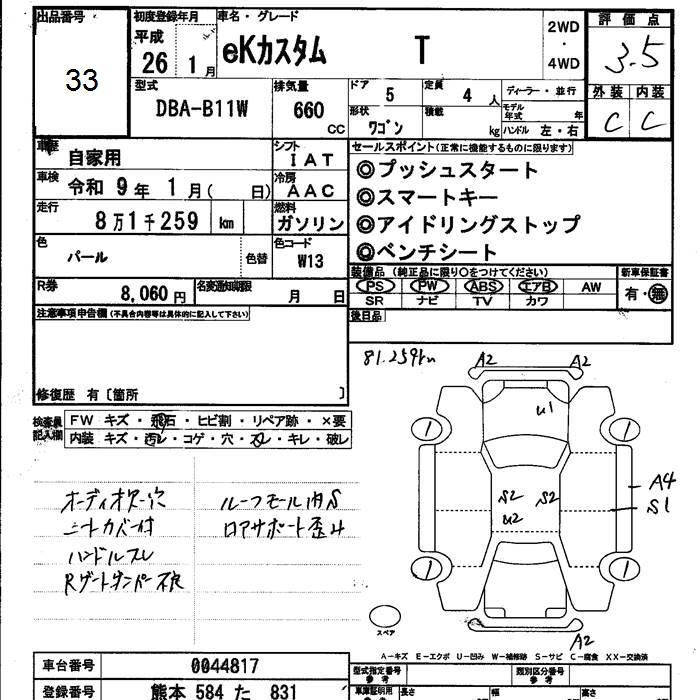 出品番号 33
初度登録年月 平成 26 1月
車名・グレード eKカスタム T
2WD・4WD
評価点 3.5
外装 内装 C C
型式 DBA-B11W
排気量 660 CC
ドア 5
定員 4 人
ディーラー・並行
形状 ワゴン
積載 kg
モデル年式 年
ハンドル 左・右
車歴 自家用
シフト IAT
セールスポイント(正常に機能するものに限ります)
◎プッシュスタート
◎スマートキー
◎アイドリングストップ
◎ベンチシート
車検 令和 9年 1月( 日)
冷房 AAC
走行 8万1千259 km
燃料 ガソリン
色 パール 色替
色コード W13
装備品(純正品に限り○をつけてください)
PS PW ABS エアB AW
SR ナビ TV カワ
新車保証書 有・無
R券 8,060円
名変通知期限 月 日
後日品
注意事項申告欄(不具合内容等は具体的に記入して下さい)
修復歴 有〔箇所 〕
検査員記入欄
FW キズ・飛石・ヒビ割・リペア跡・×要
内装 キズ・汚レ・コゲ・穴・スレ・キレ・破レ
81.259km
A2 A2
U1
1 1
S2 S2
U2
A4
S1
1 1
A2
スペア
オーディオスター穴 ルーフモール内S
シートカバー付 ロアサポート歪み
ハンドルスレ
Rゲートダンパー不良
A-キズ E-エクボ U-凹み W-補修跡 S-サビ C-腐食 XX-交換済
車台番号 0044817
型式指定番号 参考
類別区分番号 参考
登録番号 熊本 584 た 831
車庫証明用 長さ 幅 高さ